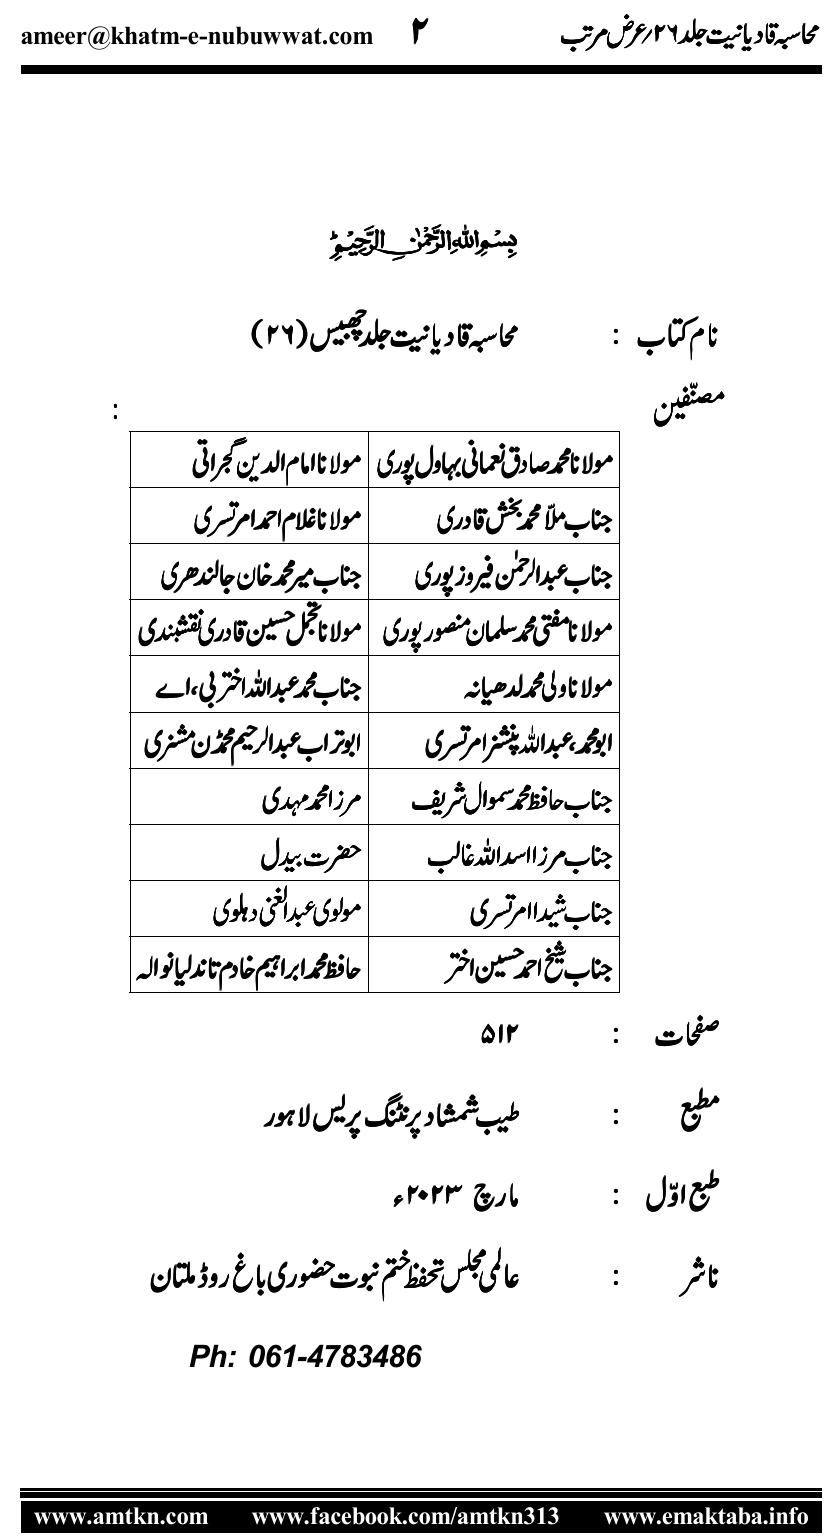 محاسبہ قادیانیت جلد ۲۶؍عرض مرتب ۲ ameer@khatm-e-nubuwwat.com
بِسْمِ اللهِ الرَّحْمٰنِ الرَّحِيْمِ
نام کتاب : محاسبہ قادیانیت جلد چھبیس (۲۶)
مصنّفین :
مولانا محمد صادق نعمانی بہاول پوری مولانا امام الدین گجراتی
جناب ملّا محمد بخش قادری مولانا غلام احمد امرتسری
جناب عبدالرحمٰن فیروز پوری جناب میر محمد خان جالندھری
مولانا مفتی محمد سلمان منصور پوری مولانا تجمل حسین قادری نقشبندی
مولانا ولی محمد لدھیانہ جناب محمد عبداللہ اختر بی،اے
ابومحمد،عبداللہ پنشنر امرتسری ابوتراب عبدالرحیم محمڈن مشنری
جناب حافظ محمد سموال شریف مرزا محمد مہدی
جناب مرزا اسد اللہ غالب حضرت بیدل
جناب شیدا امرتسری مولوی عبدالغنی دہلوی
جناب شیخ احمد حسین اختر حافظ محمد ابراہیم خادم تاندلیانوالہ
صفحات : ۵۱۲
مطبع : طیب شمشاد پرنٹنگ پریس لاہور
طبع اوّل : مارچ ۲۰۲۳ء
ناشر : عالمی مجلس تحفظ ختم نبوت حضوری باغ روڈ ملتان
Ph: 061-4783486
www.amtkn.com www.facebook.com/amtkn313 www.emaktaba.info